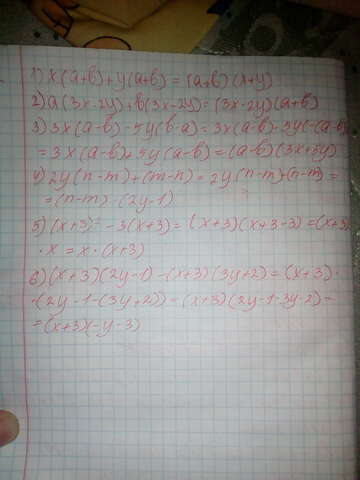 1) x(a+b)+y(a+b) = (a+b)(x+y)
2) a(3x-2y)+b(3x-2y)=(3x-2y)(a+b)
3) 3x(a-b)-5y(b-a)=3x(a-b)-5y(-(a-b)
=3x(a-b)+5y(a-b)=(a-b)(3x+5y)
4) 2y(n-m)+(m-n)=2y(n-m)-(n-m)=
=(n-m)·(2y-1)
5) (x+3)²-3(x+3)=(x+3)(x+3-3)=(x+3)
·x=x·(x+3)
6) (x+3)(2y-1)-(x+3)(3y+2)=(x+3)·
·(2y-1-(3y+2))=(x+3)(2y-1-3y-2)=
=(x+3)(-y-3)